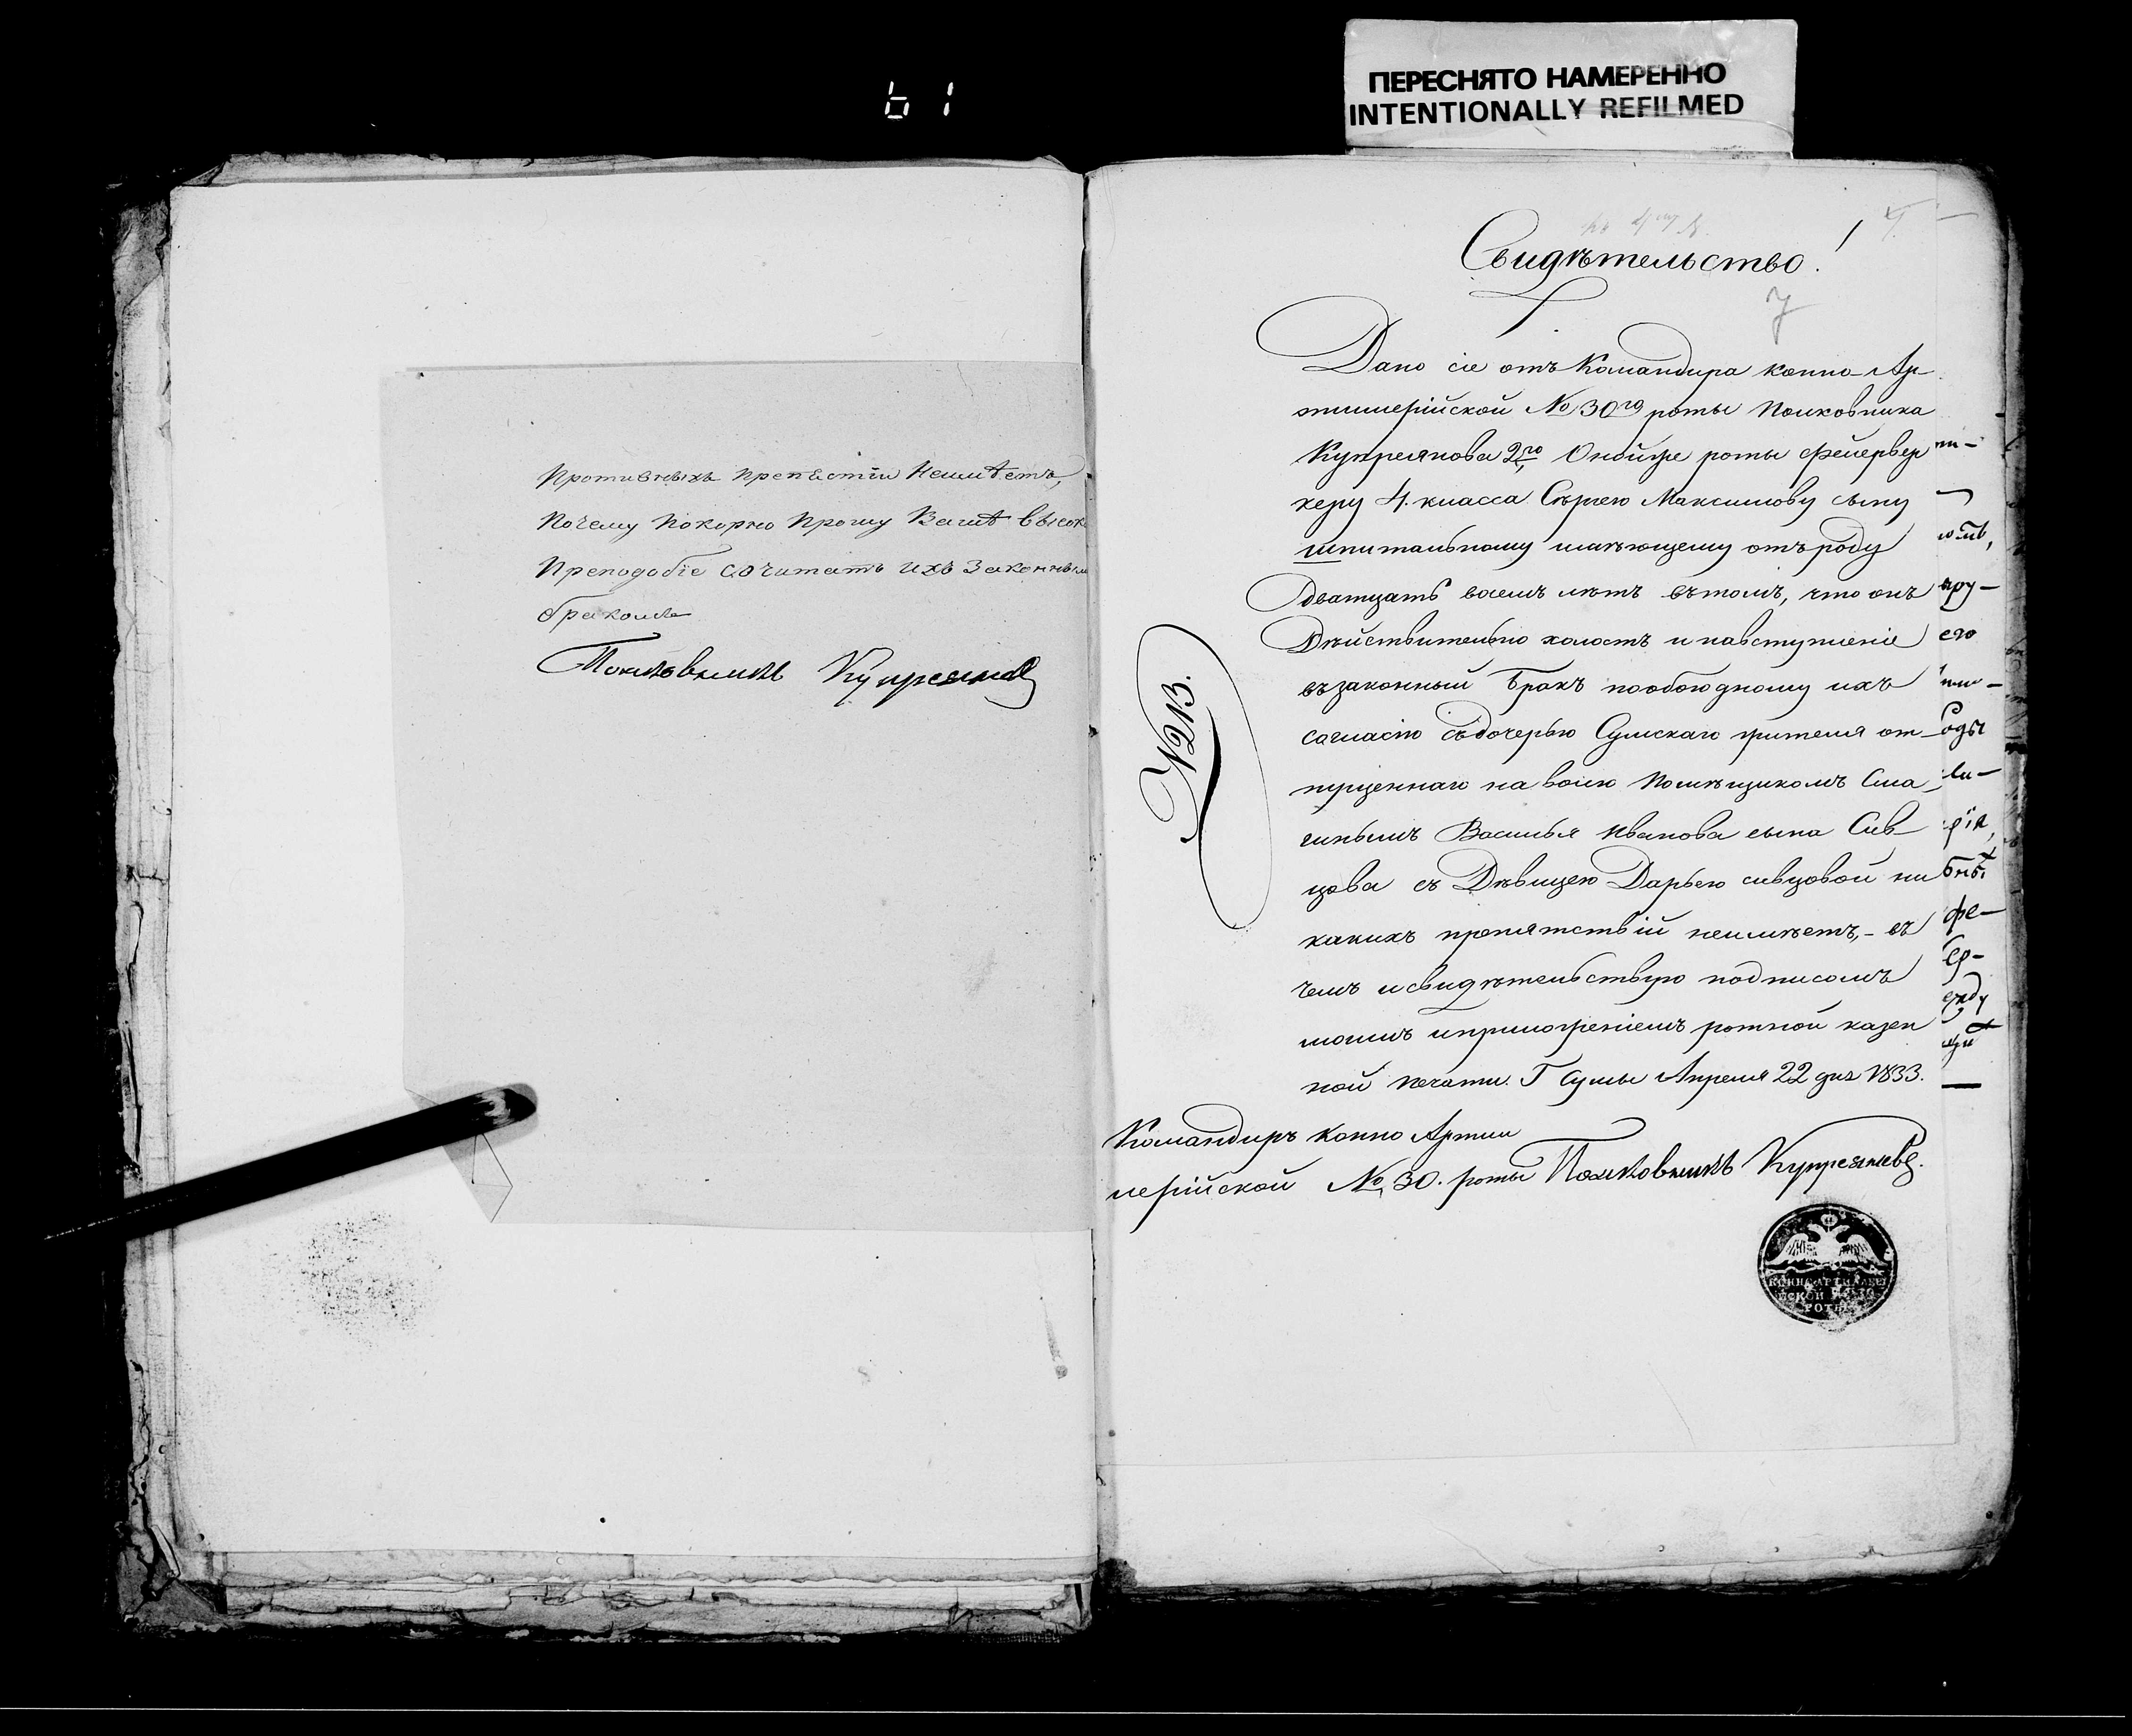 61
ПЕРЕСНЯТО НАМЕРЕННО
INTENTIONALLY REFILMED
Противныхъ Препѣстіи Неимѣетъ,
Почему Покорно Прошу Ваше Высоко
Преподобіе Сочитать Ихъ Законным
бракомъ
Полковникъ Купреяновъ
Свидѣтельство!
7
Дано сіе отъ Командира конно-Ар-
тилерійской № 30го роты Полковника
Купреянова 2го Онойже роты фейервер
керу 4. класса Сѣргею Максимову сыну
шпитальному имѣющему отъ роду
Дватцать восемъ лѣтъ вътомъ, что онъ
Дѣйствительно холостъ и навступленіе
възаконный Бракъ пообоюдному ихъ
согласію съдочерью Сумскаго жителя от-
пущеннаго наволю Помѣщикомъ Сма-
гинымъ Василья Иванова сына Сив-
цова съ Дѣвицею Дарьею сивцовой ни
какихъ препятствій неимѣетъ,- въ
чемъ исвидѣтельствую подписомъ
моимъ иприложеніемъ ротной казен
ной печати. Г Сумы Апреля 22 дня 1833.
№213.
Командиръ конно Арти
лерійской № 30. роты Полковникъ Купреяновъ.
КОННО АРТИЛЛЕРІ
ЙСКОЙ № 30
РОТЫ